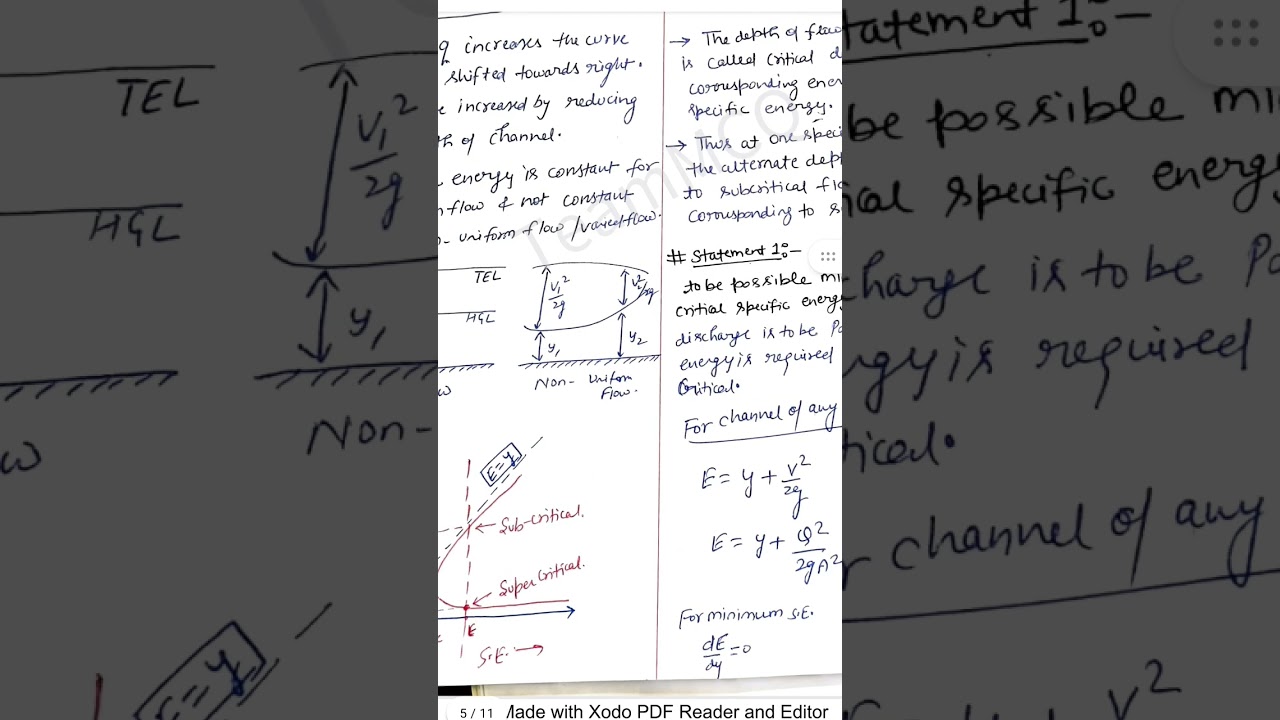 q increases the curve
shifted towards right.
increased by reducing
of channel.
energy is constant for
flow & not constant
uniform flow / varied flow.
TEL
HGL
V₁²/2g
y₁
V₂²/2g
y₂
Non- Uniform
Flow.
E=y
Sub-critical.
Supercritical.
E
S.E. →
→ The depth of flow
is called critical d
corrousponding ener
specific energy.
→ Thus at one speci
the alternate dept
to subcritical flo
corousponding to s
# Statement 1:-
to be possible mi
critial specific energy
discharge is to be Po
energy is required
Critical.
For channel of any
E = y + V²/2g
E = y + Q²/2gA²
For minimum S.E.
dE/dy = 0
TeamMCQ
5 / 11
Made with Xodo PDF Reader and Editor
TEL
HGL
V₁²/2g
y₁
Non-
E = y
tatement 1:-
be possible mi
ial specific energy
charge is to be Po
rgy is required
tical.
channel of any
V²